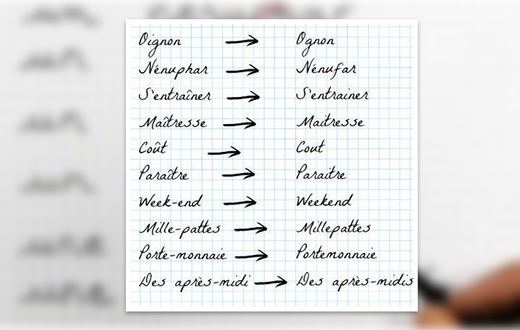 Oignon → Ognon
Nénuphar → Nénufar
S'entraîner → S'entrainer
Maîtresse → Maitresse
Coût → Cout
Paraître → Paraitre
Week-end → Weekend
Mille-pattes → Millepattes
Porte-monnaie → Portemonnaie
Des après-midi → Des après-midis